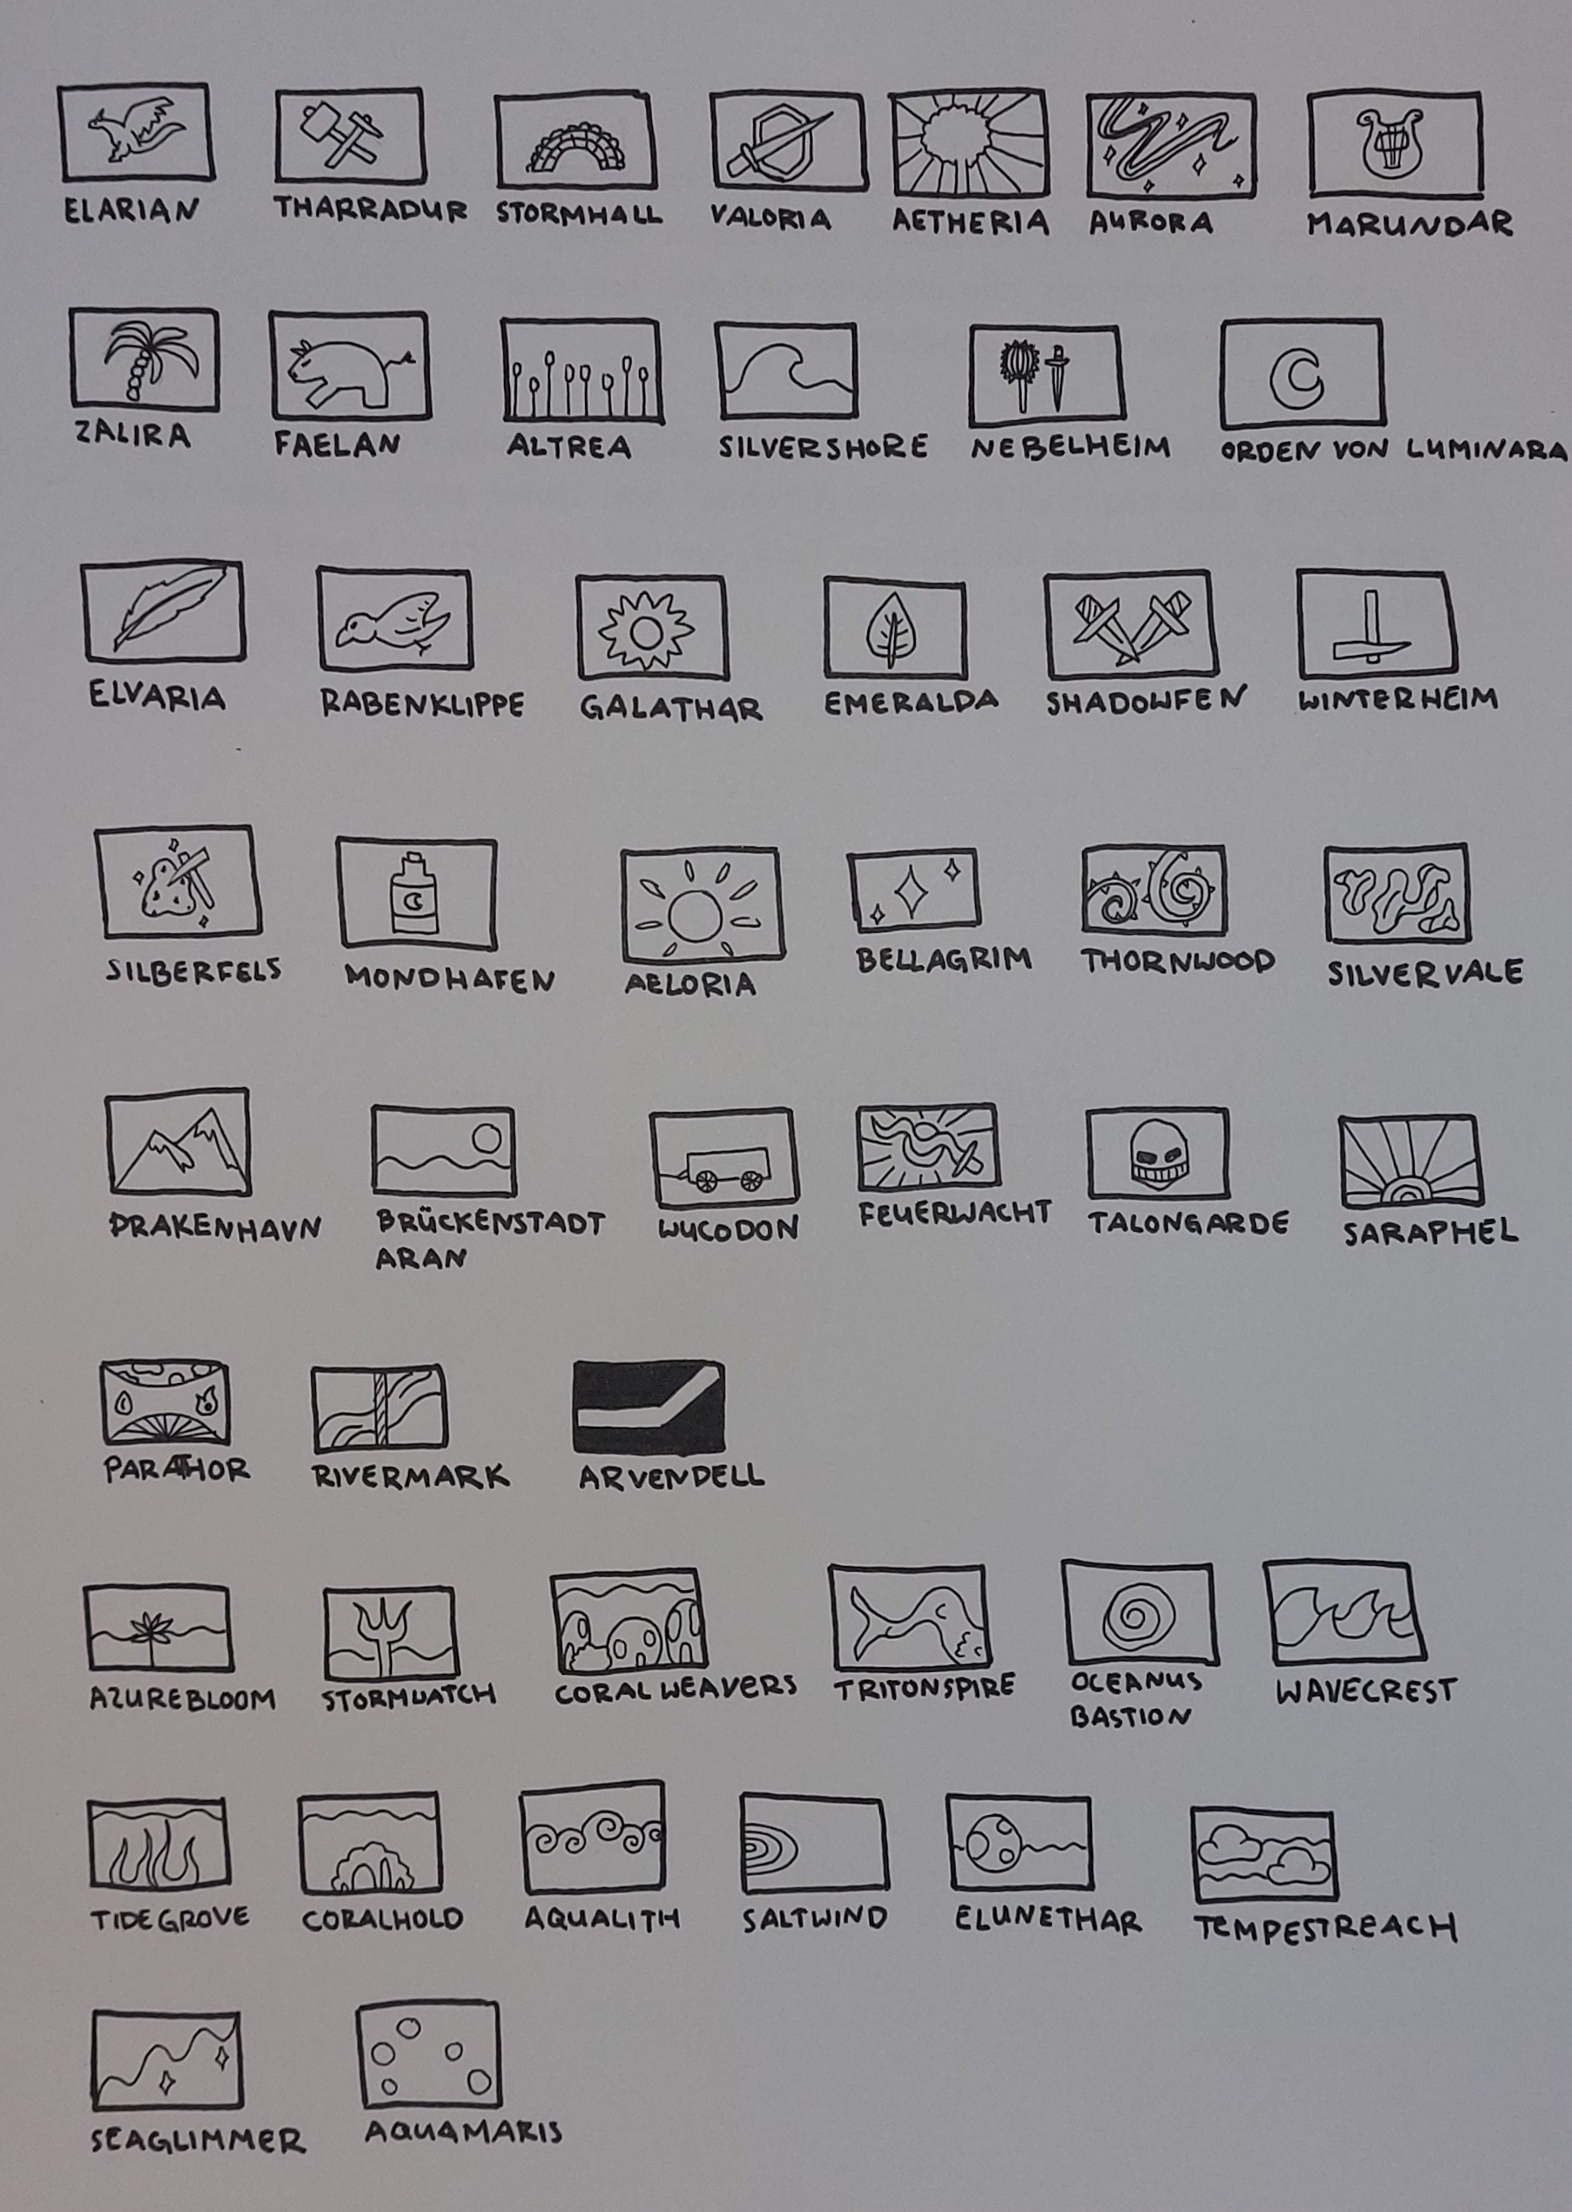 ELARIAN THARRADUR STORMHALL VALORIA AETHERIA AURORA MARUNDAR
ZALIRA FAELAN ALTREA SILVERSHORE NEBELHEIM ORDEN VON LUMINARA
ELVARIA RABENKLIPPE GALATHAR EMERALDA SHADOWFEN WINTERHEIM
SILBERFELS MONDHAFEN AELORIA BELLAGRIM THORNWOOD SILVERVALE
DRAKENHAVN BRÜCKENSTADT WUCODON FEUERWACHT TALONGARDE SARAPHEL
ARAN
PARATHOR RIVERMARK ARVENDELL
AZUREBLOOM STORMWATCH CORAL WEAVERS TRITONSPIRE OCEANUS WAVECREST
BASTION
TIDEGROVE CORALHOLD AQUALITH SALTWIND ELUNETHAR TEMPESTREACH
SEAGLIMMER AQUAMARIS